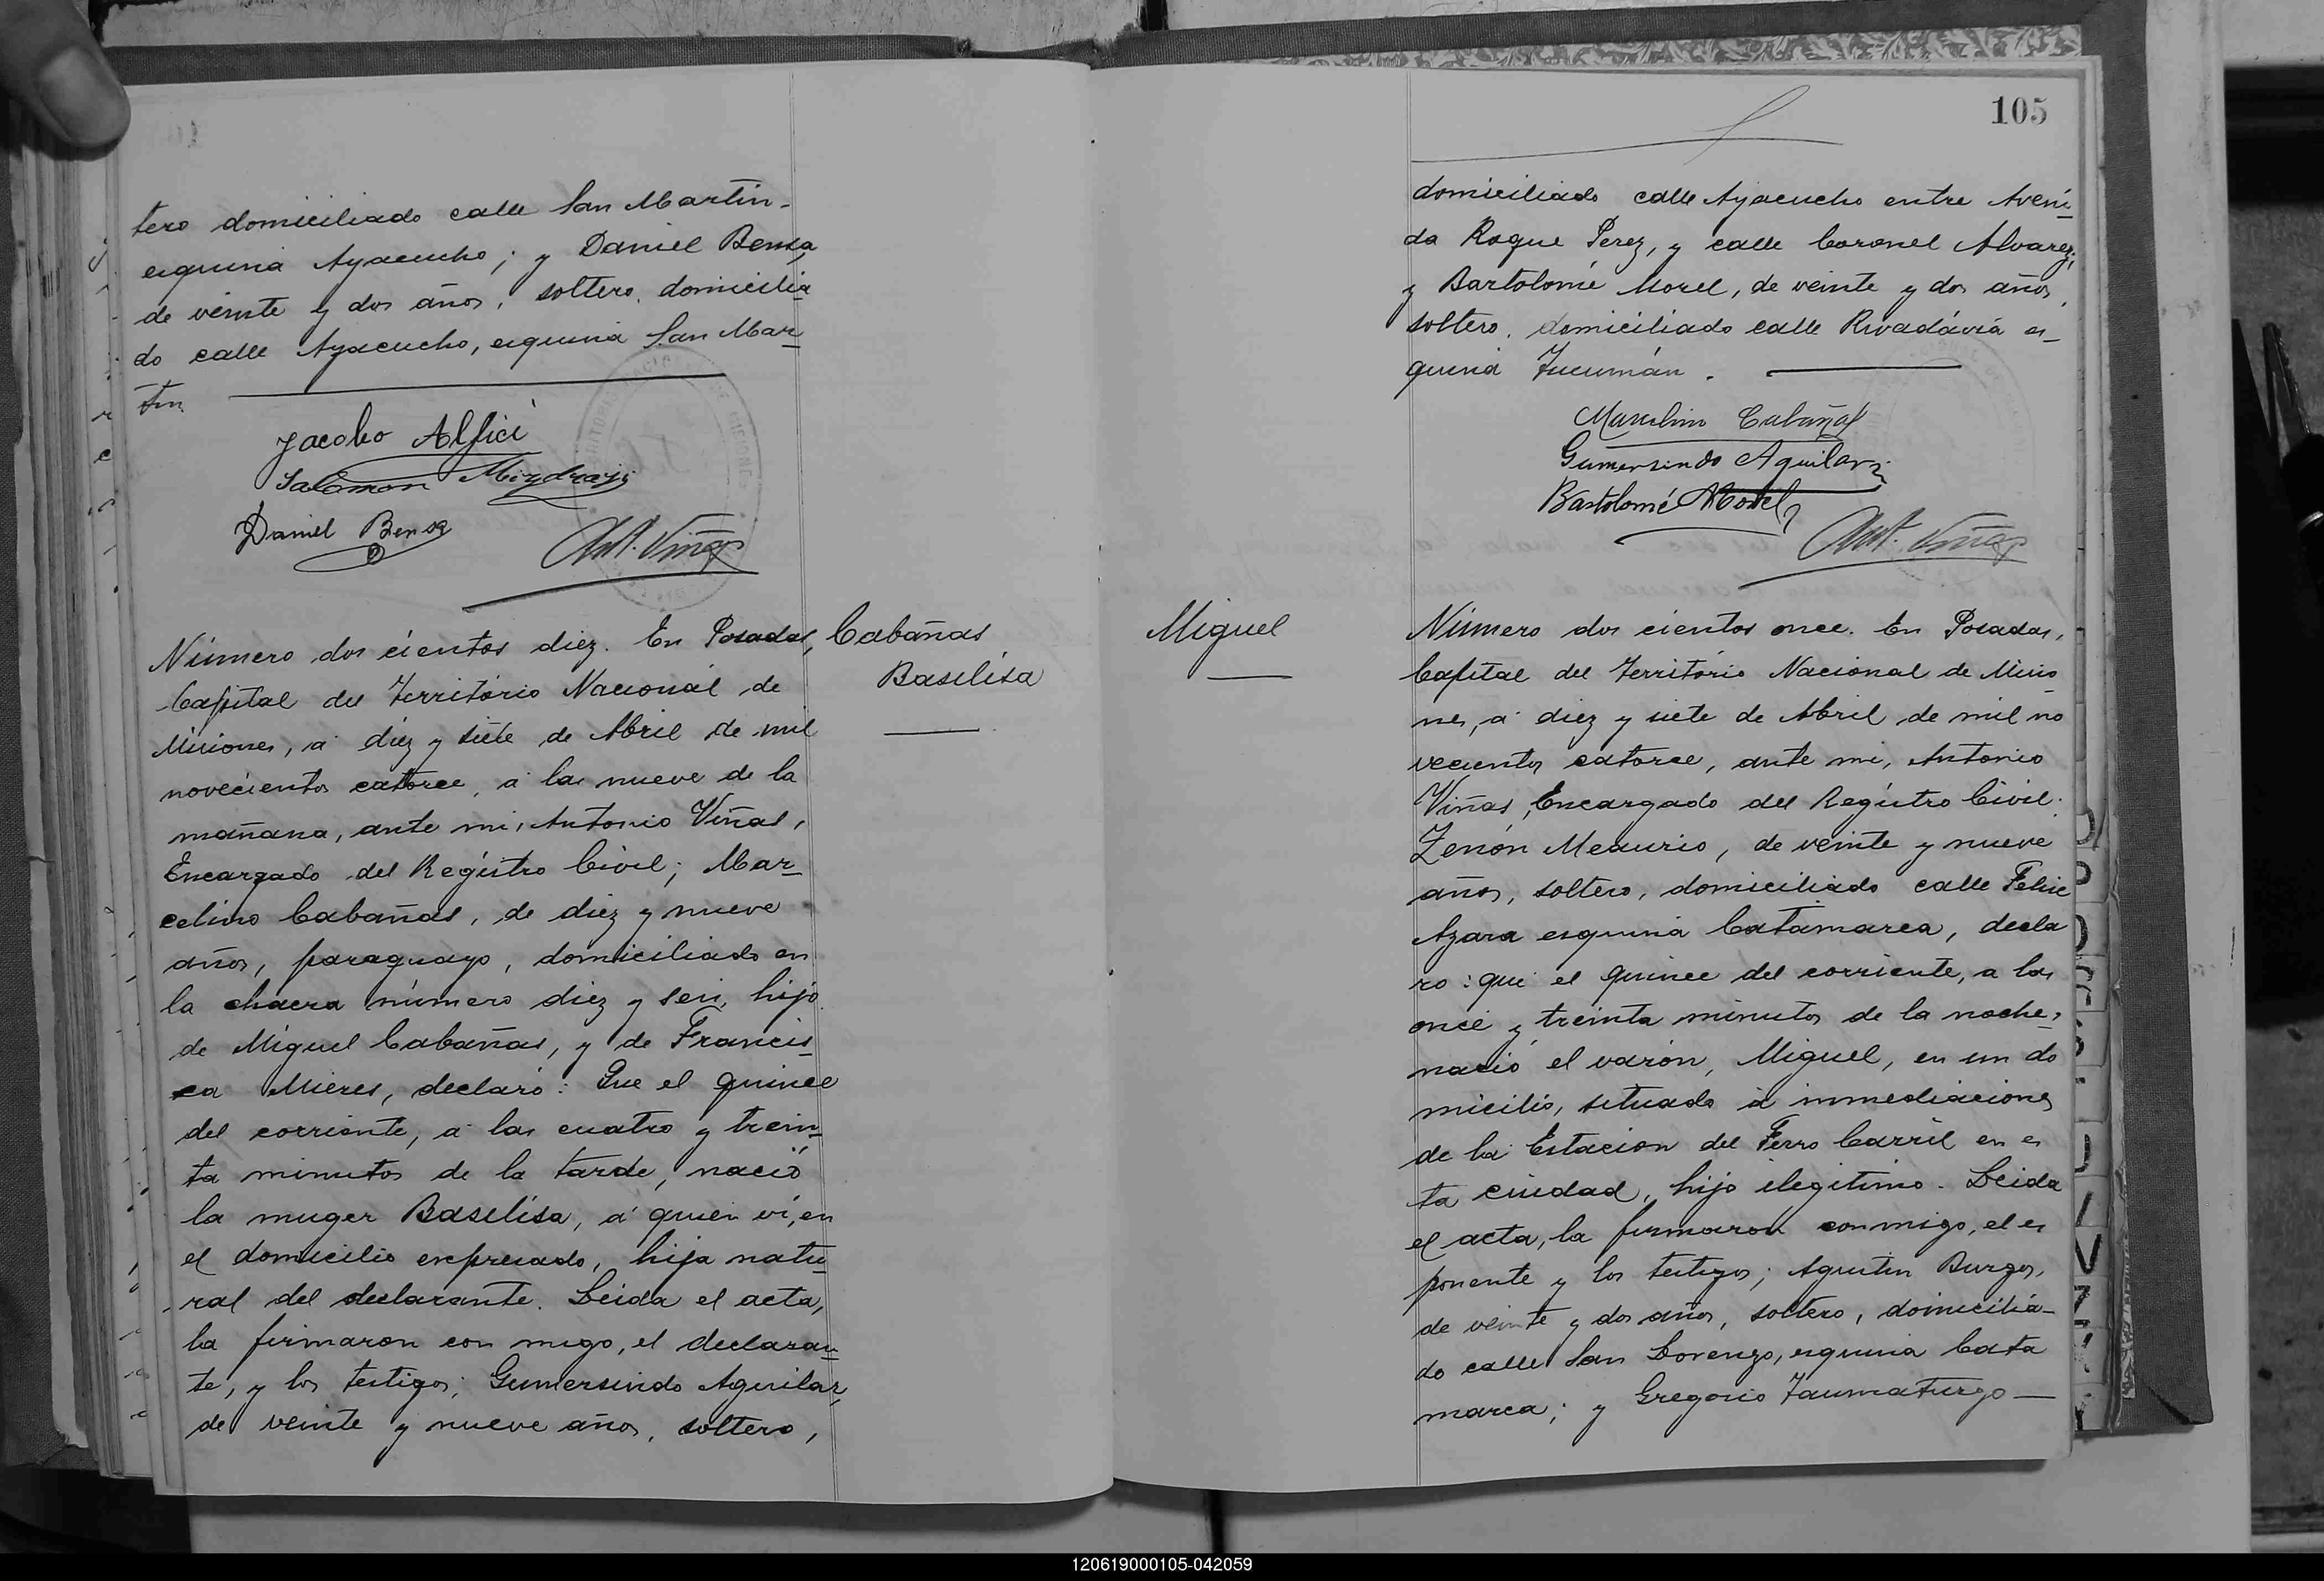 tero domiciliado calle San Martin-
esquina Ayacucho; y Daniel Bensa,
de veinte y dos años, soltero, domicilia
do calle Ayacucho, esquina San Mar
tin.
Jacobo Alfici
Salomon Mizdraji
Daniel Bensa
Ant. Viñas
Número dos cientos diez. En Posadas,
Capital del Território Nacional de
Misiones, á diez y siete de Abril de mil
novecientos catorce, á las nueve de la
mañana, ante mi, Antonio Viñas,
Encargado del Registro Civil; Mar
celino Cabañas, de diez y nueve
años, paraguayo, domiciliado en
la chacra número diez y seis, hijo
de Miguel Cabañas, y de Francis
ca Mieres, declaró: Que el quince
del corriente, á las cuatro y trein
ta minutos de la tarde, nació
la muger Baselisa, á quien ví, en
el domicilio expresado, hija natu
ral del declarante. Leida el acta,
la firmaron con migo, el declaran
te, y los testigos; Gumersindo Aguilar,
de veinte y nueve años, soltero,
Cabañas
Baselisa
105
domiciliado calle Ayacucho entre Aveni
da Roque Perez, y calle Coronel Alvarez;
y Bartolomé Morel, de veinte y dos años,
soltero, domiciliado calle Rivadávia es
quina Tucumán.
Marcelino Cabañas
Gumersindo Aguilar
Bartolomé Morel
Ant. Viñas
Miguel
Número dos cientos once. En Posadas,
Capital del Território Nacional de Misio
nes, á diez y siete de Abril de mil no
vecientos catorce, ante mi, Antonio
Viñas, Encargado del Registro Civil.
Zenón Meaurio, de veinte y nueve
años, soltero, domiciliado calle Felix
Azara esquina Catamarca, decla
ró: que el quince del corriente, a las
once y treinta minutos de la noche,
nació el varón, Miguel, en un do
micilio, situado á inmediaciones
de la Estacion del Ferro Carril en es
ta ciudad, hijo ilegitimo. Leida
el acta, la firmaron conmigo, el es
ponente y los testigos; Agustin Burgos,
de veinte y dos años, soltero, domicilia-
do calle San Lorenzo, esquina Cata
marca; y Gregorio Taumaturgo
120619000105-042059